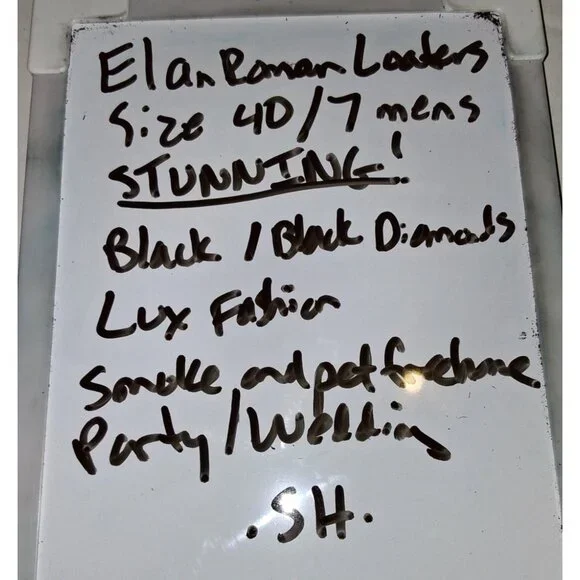 Elan Roman Loafers
Size 40/7 mens
STUNNING!
Black / Black Diamonds
Lux Fashion
Smoke and pet free home
Party/Wedding
.SH.